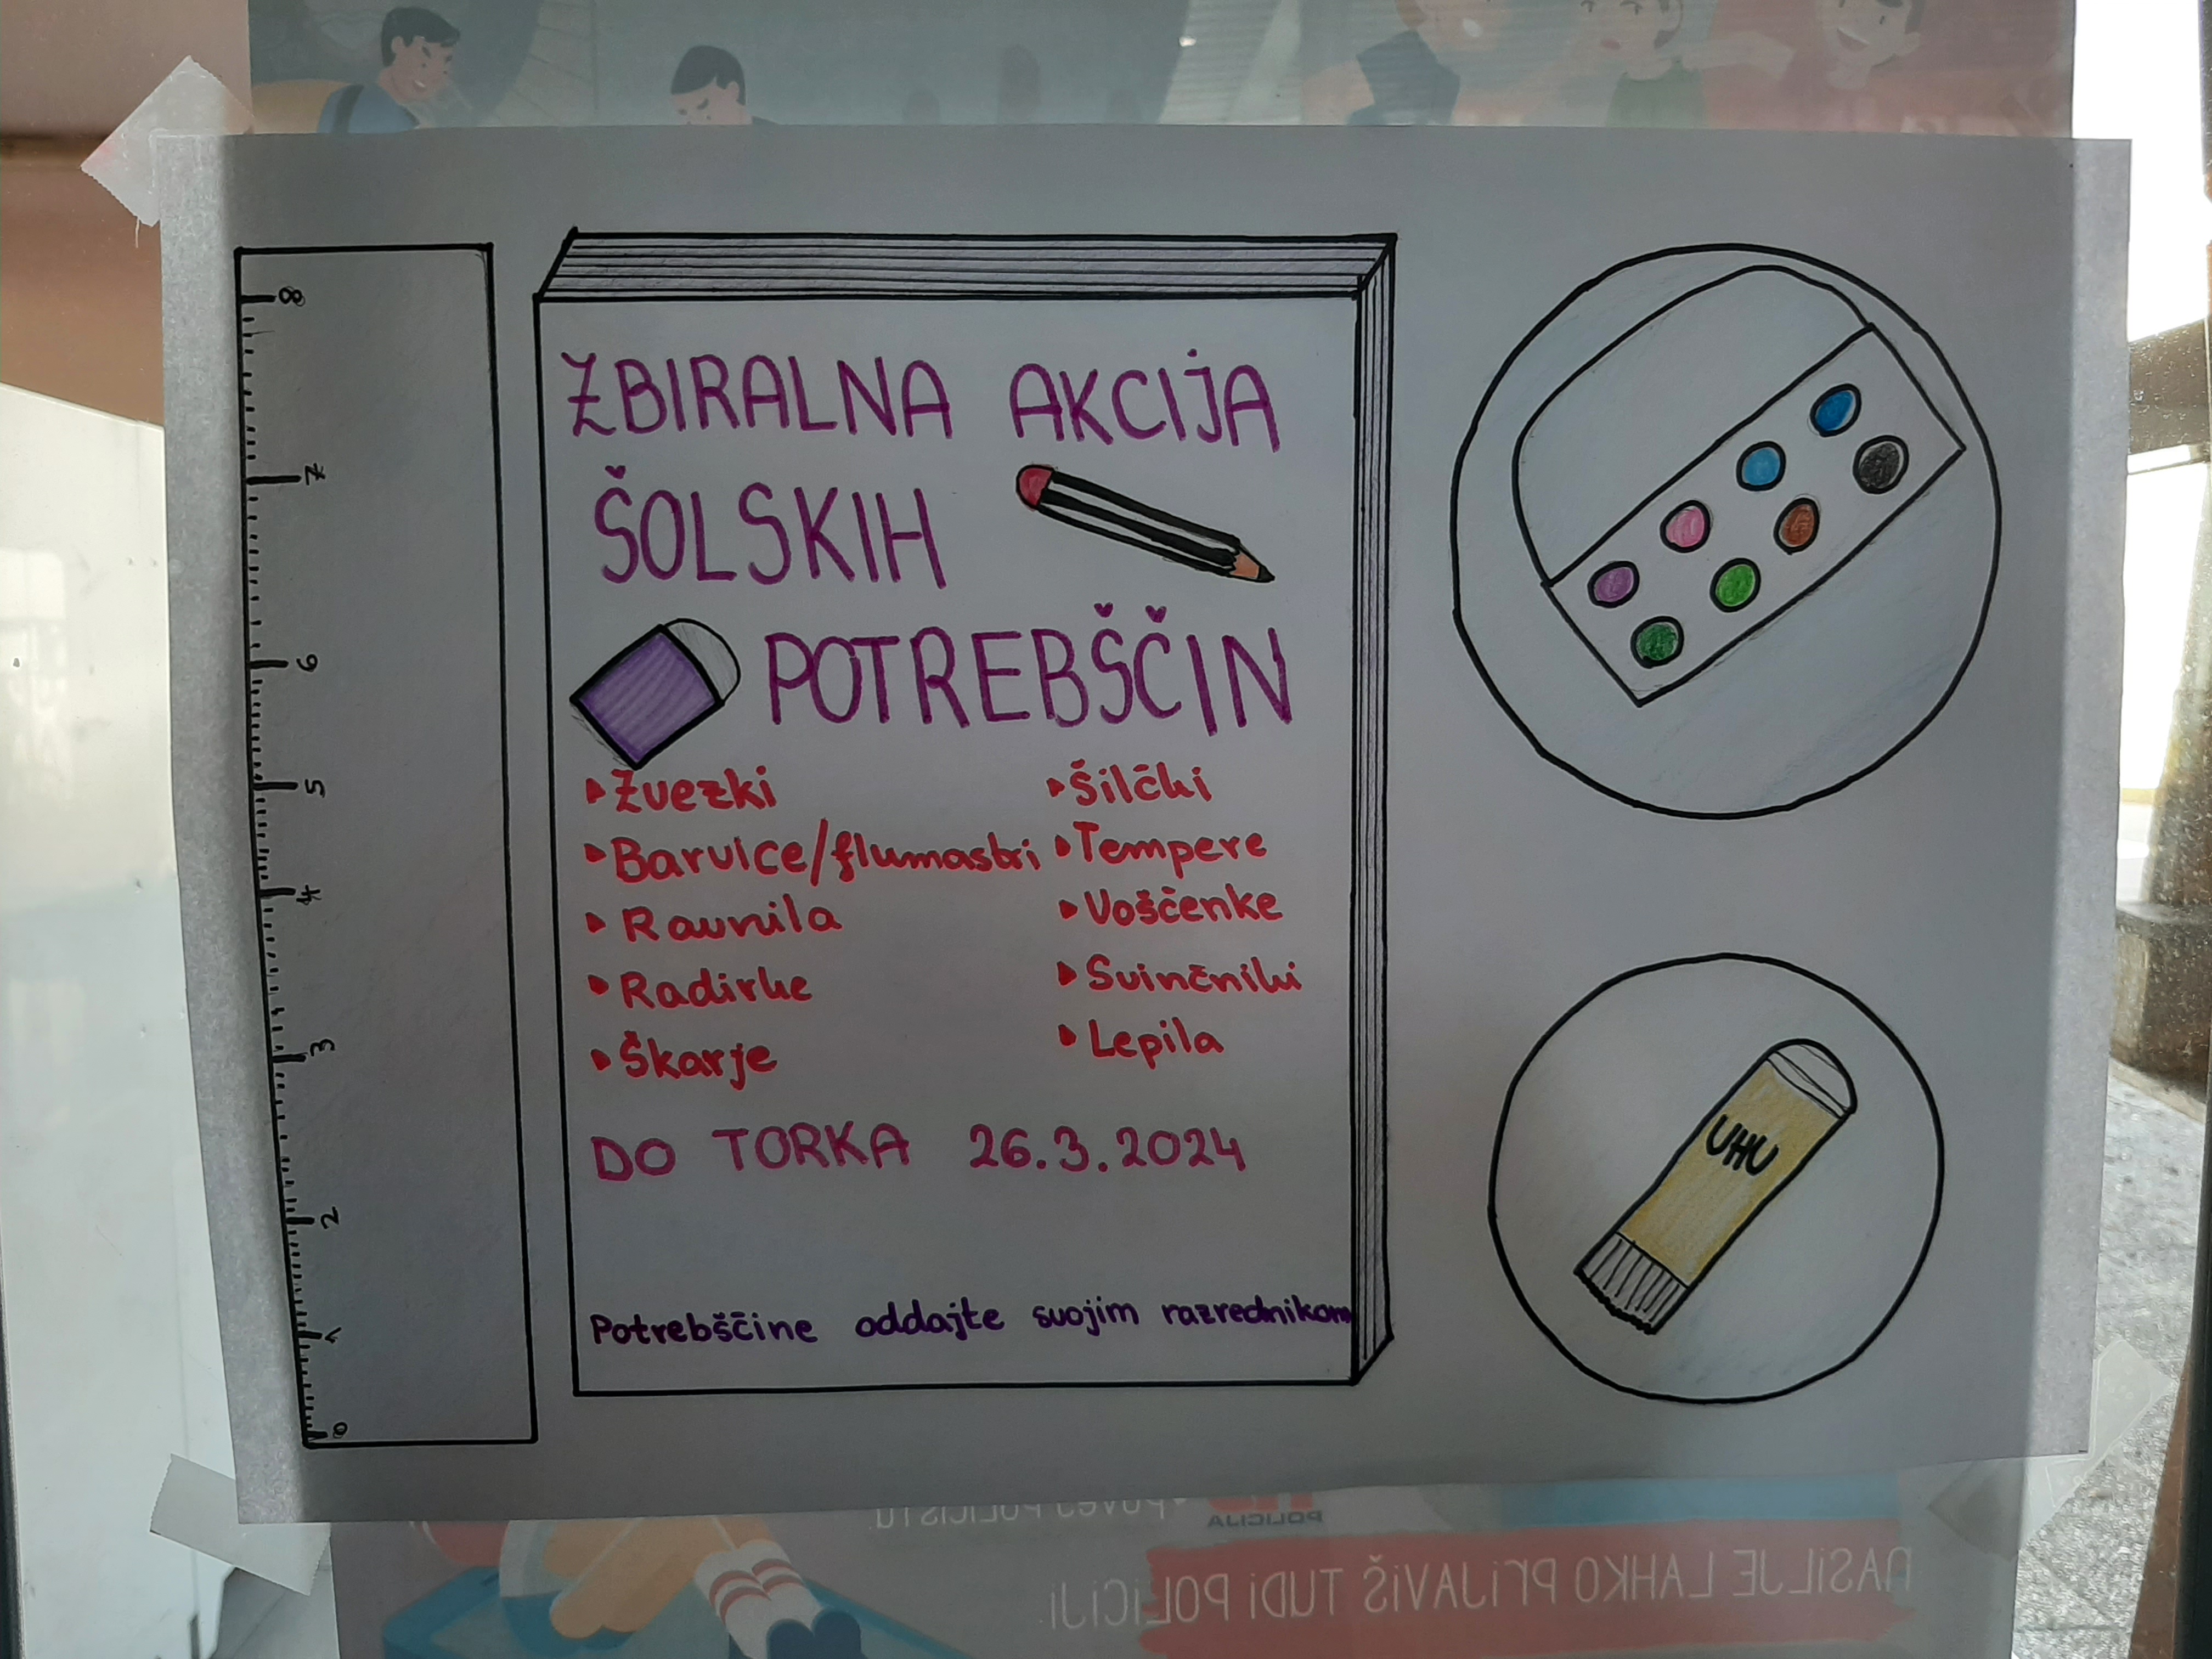 ZBIRALNA AKCIJA
ŠOLSKIH
POTREBŠČIN
Zvezki
Barvice/flumastri
Ravnila
Radirke
Škarje
Šilčki
Tempere
Voščenke
Svinčniki
Lepila
DO TORKA 26.3.2024
Potrebščine oddajte svojim razrednikom
8
7
6
5
4
3
2
1
0
UHU
POVEJ POLICISTU
POLICIJA
NASILJE LAHKO PRIJAVIŠ TUDI POLICIJI